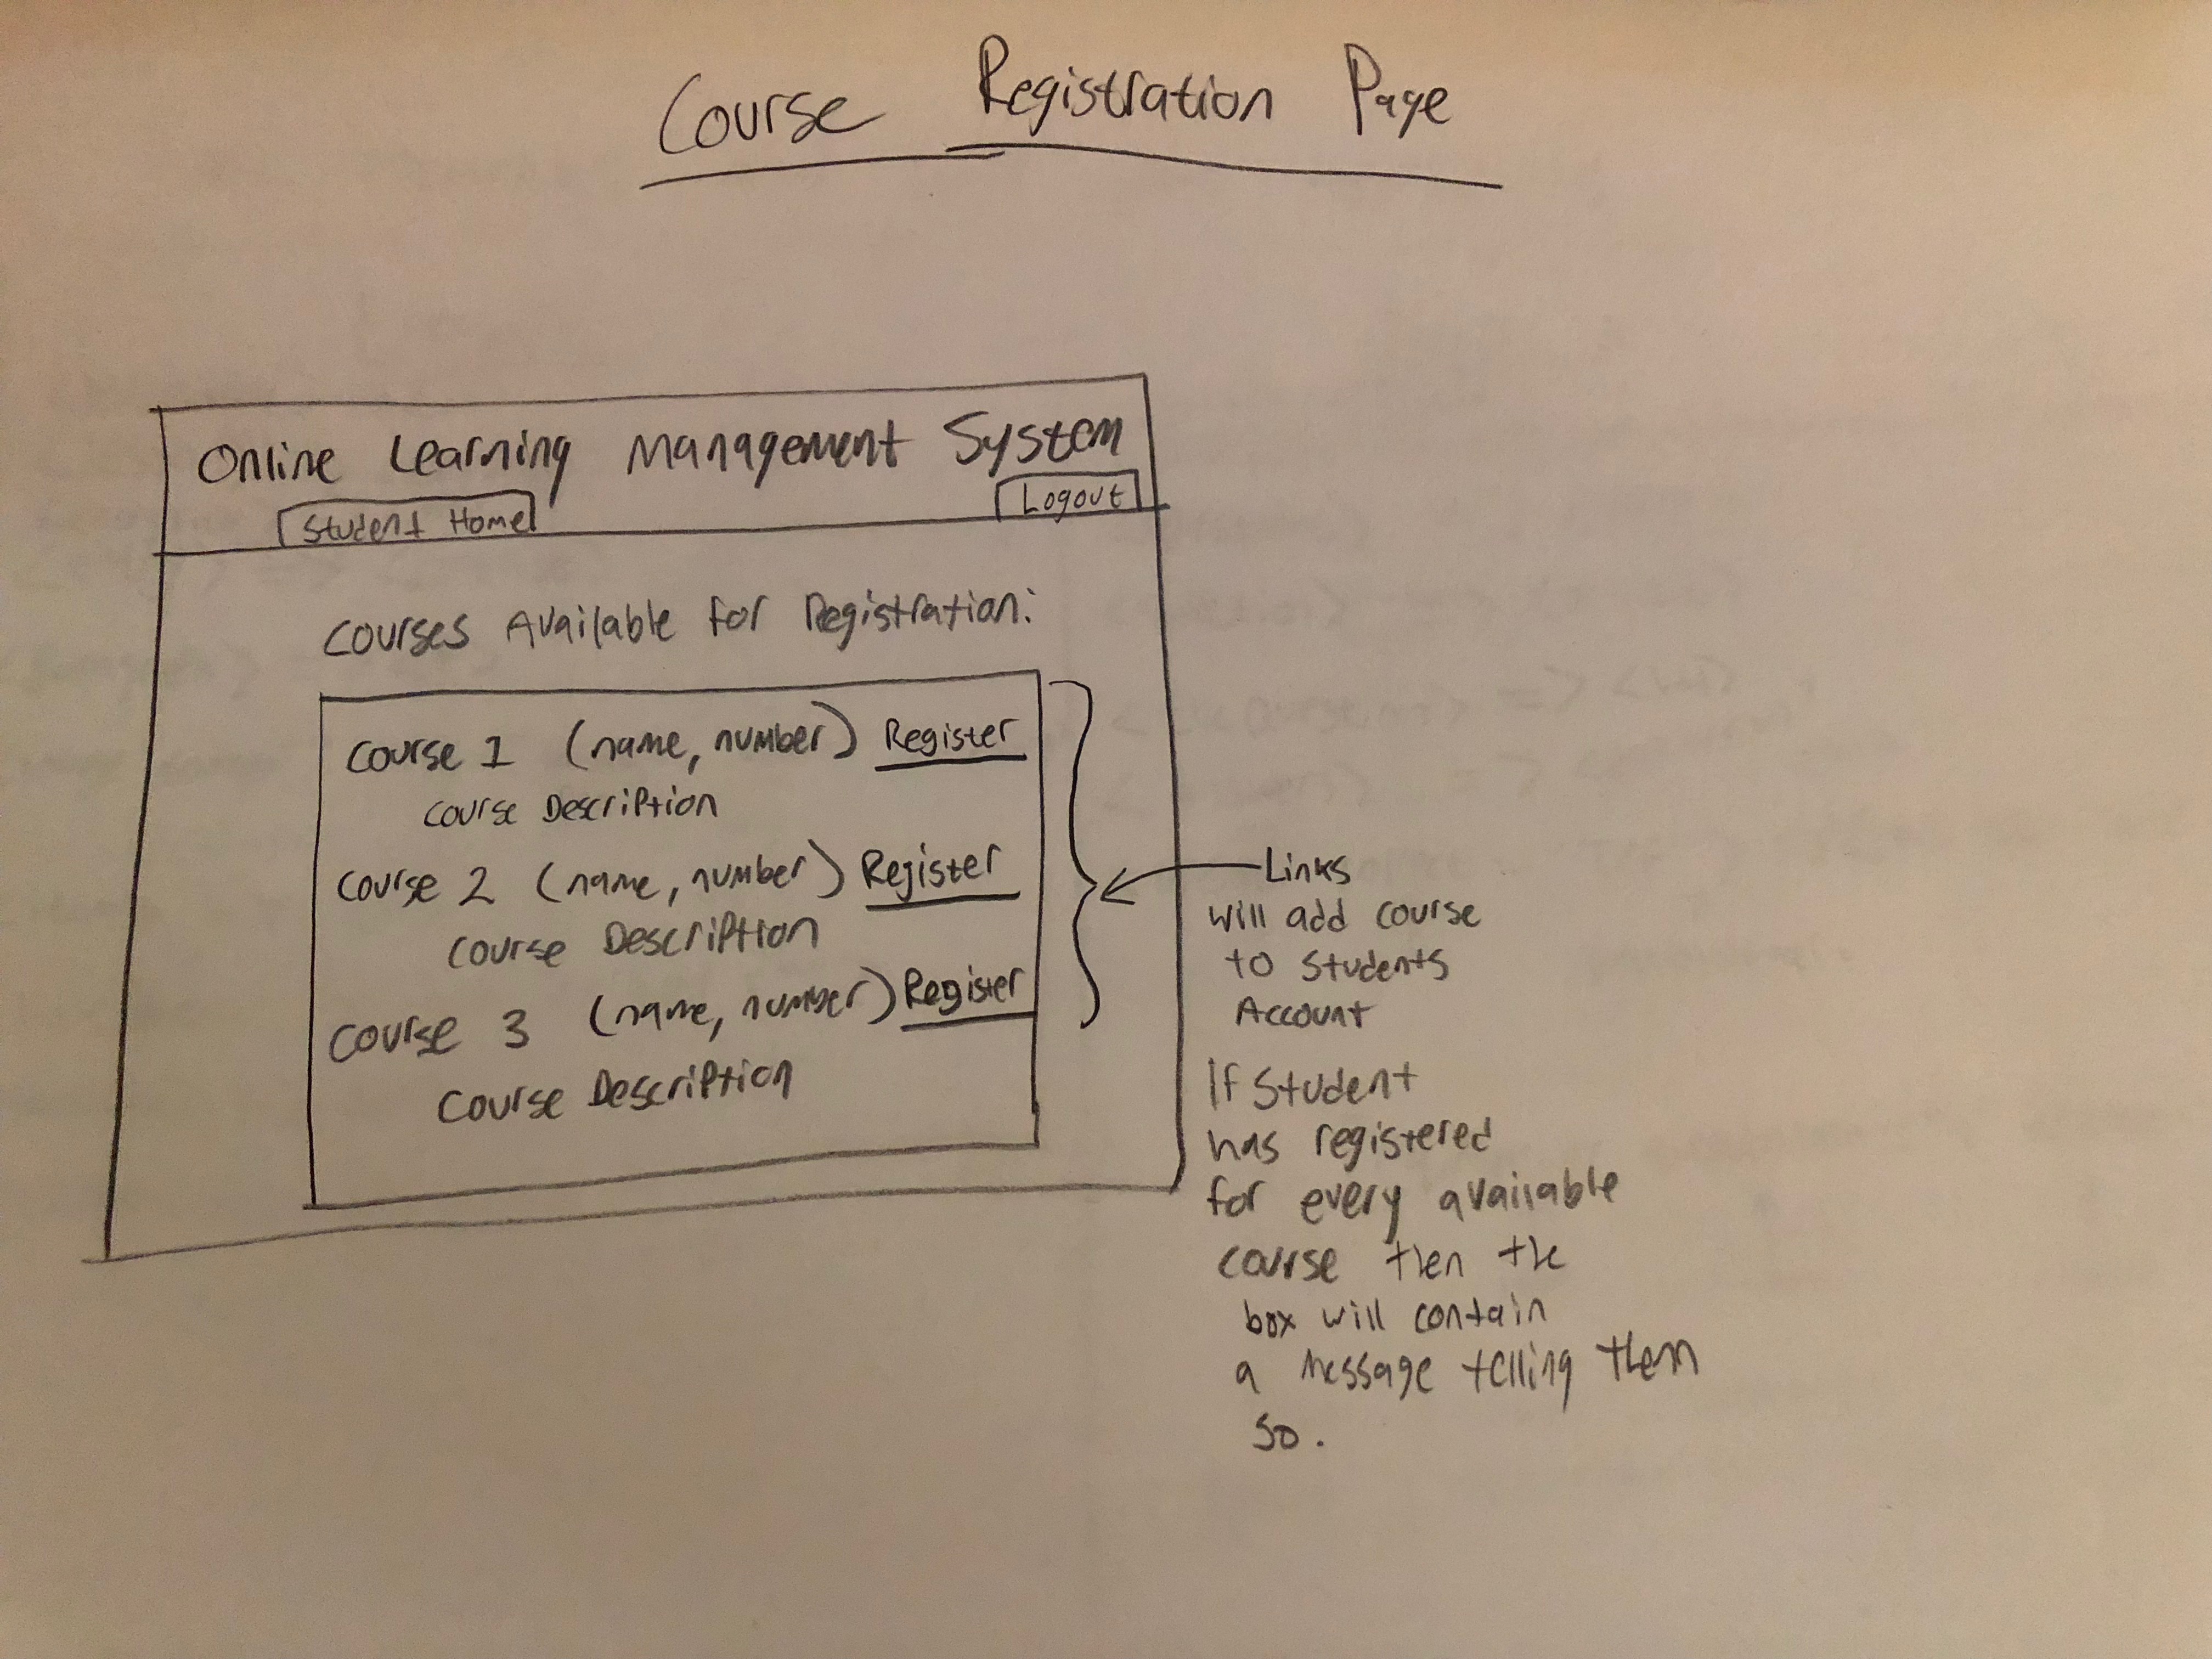 Course Registration Page
Online Learning Management System
Student Home
Logout
Courses Available for Registration:
Course 1 (name, number) Register
Course Description
Course 2 (name, number) Register
Course Description
Course 3 (name, number) Register
Course Description
Links
will add course
to students
Account
If Student
has registered
for every available
course then the
box will contain
a message telling them
so.